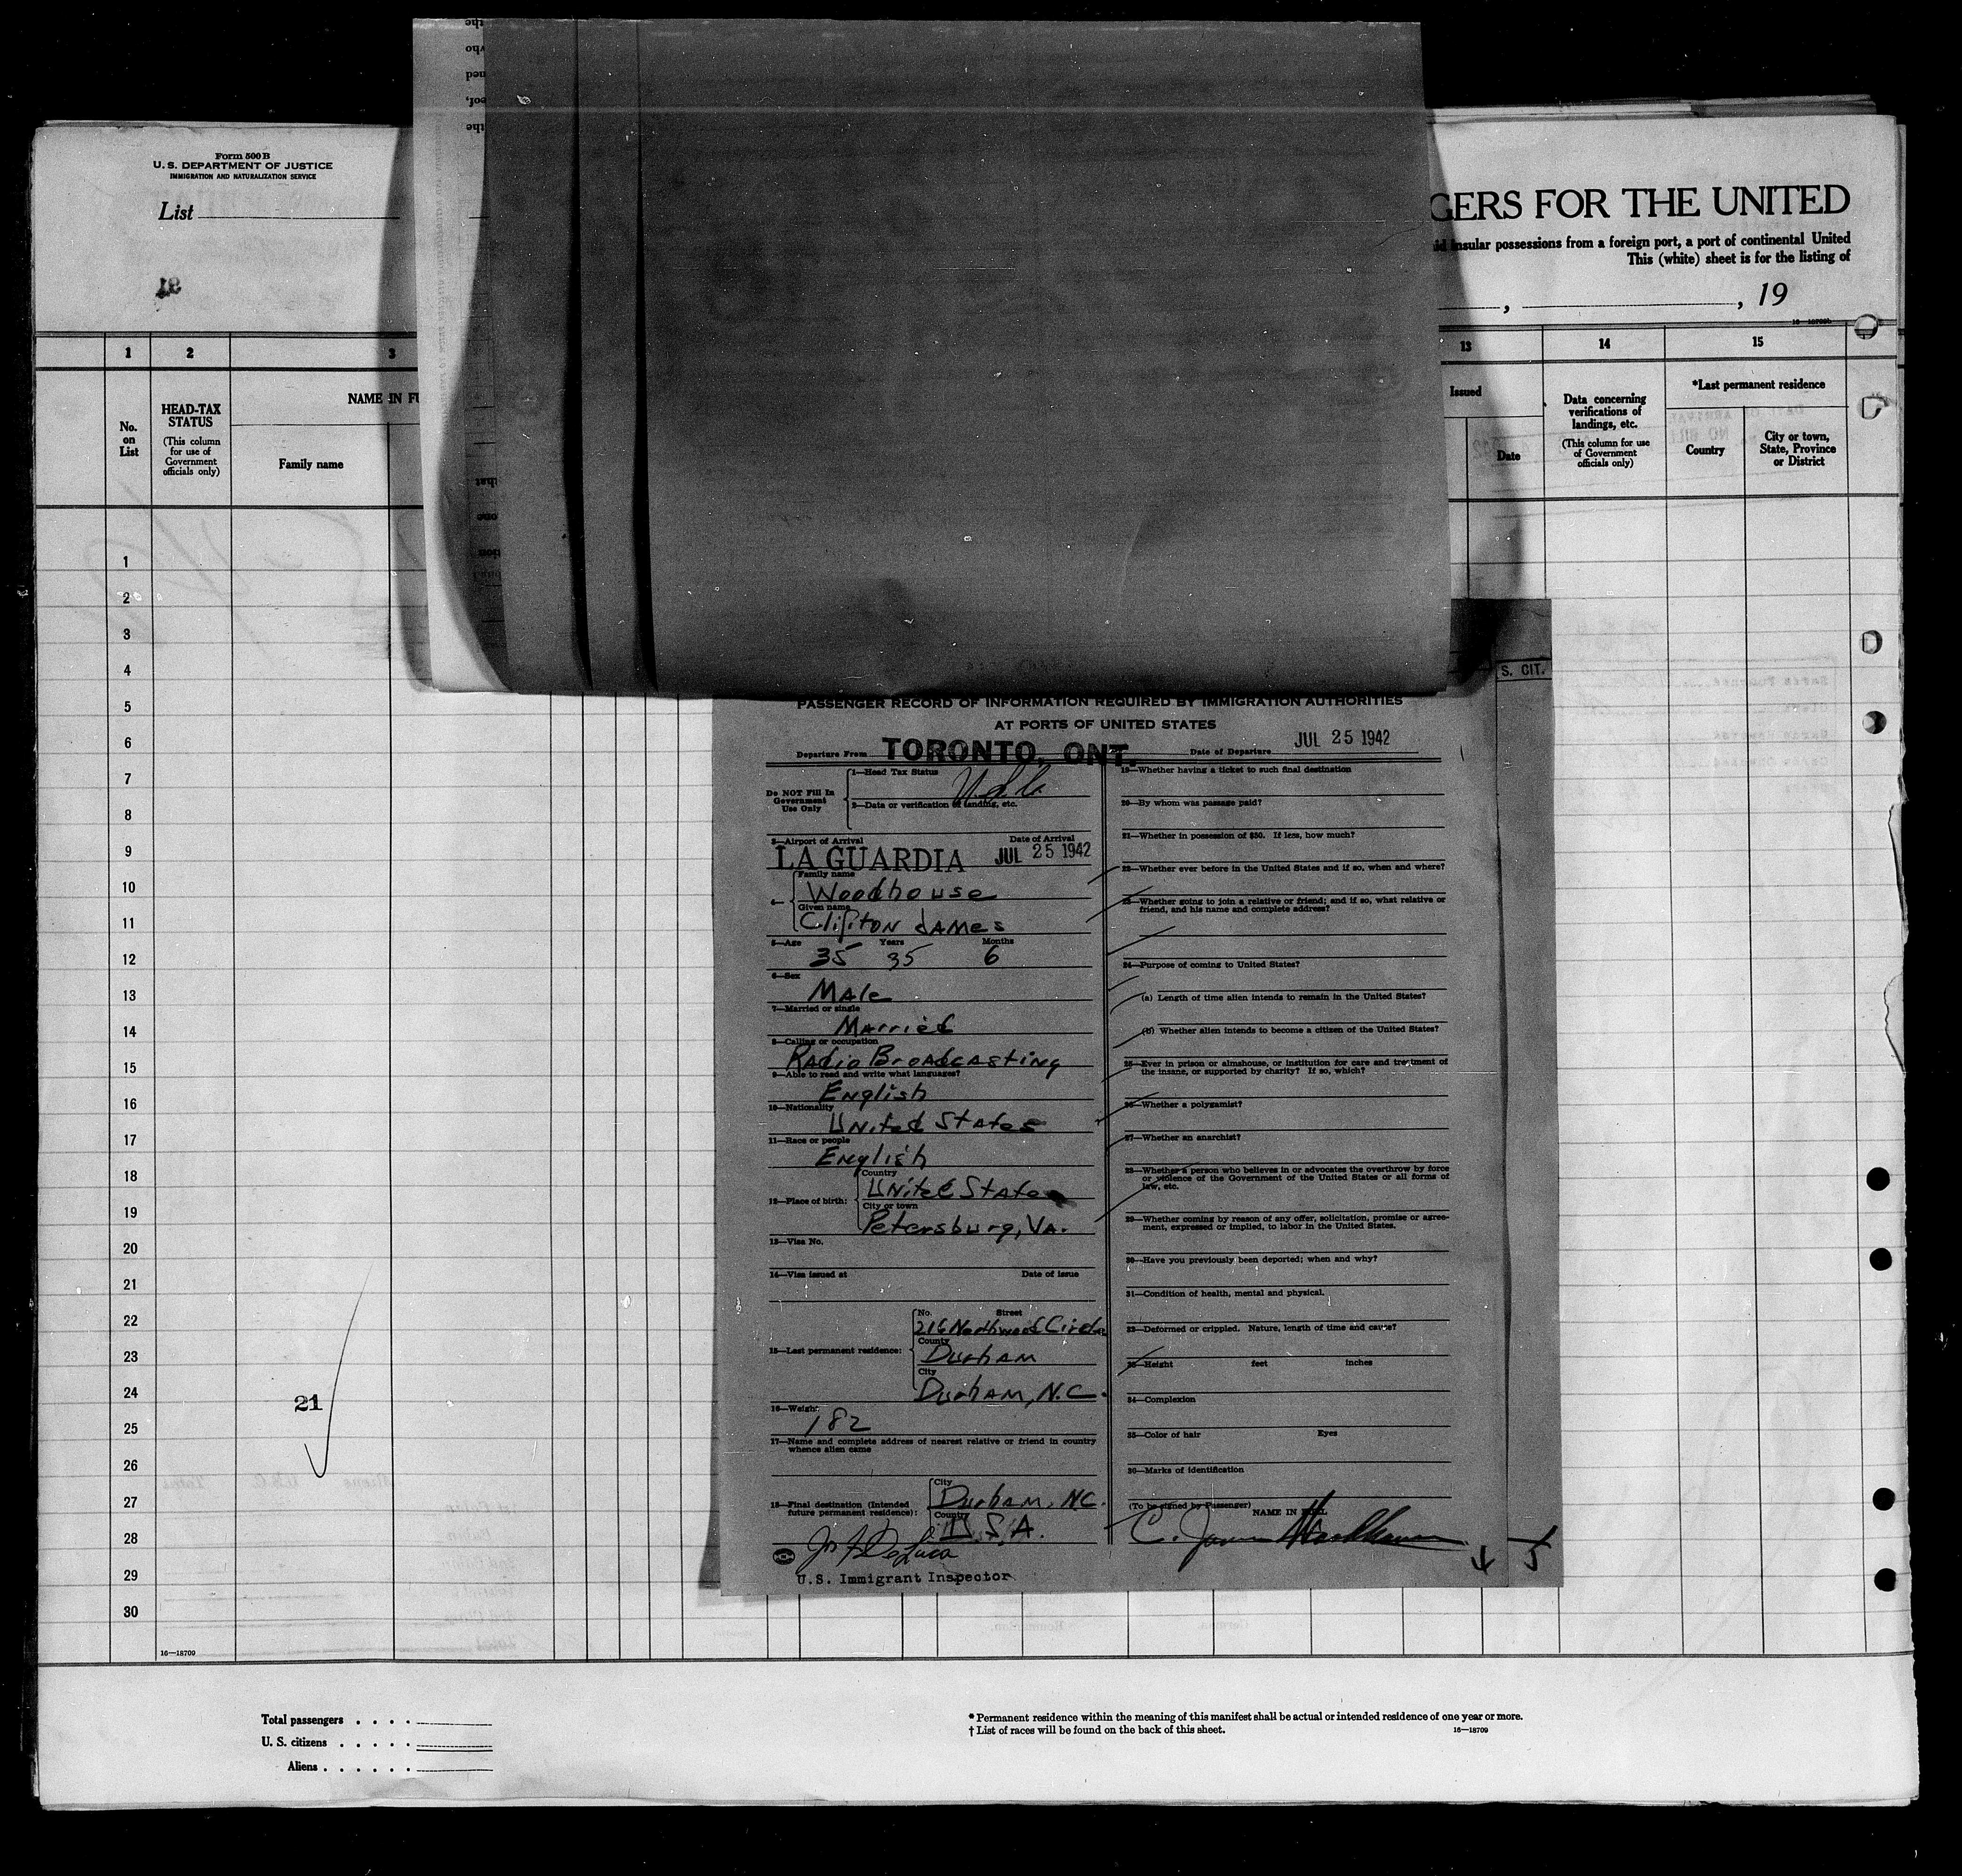 Form 500 B
U. S. DEPARTMENT OF JUSTICE
IMMIGRATION AND NATURALIZATION SERVICE
List
GERS FOR THE UNITED
insular possessions from a foreign port, a port of continental United
This (white) sheet is for the listing of
, , 19
1 2 3 13 14 15
No. on List
HEAD-TAX STATUS
(This column for use of Government officials only)
NAME IN FU
Family name
Issued
Date
Data concerning verifications of landings, etc.
(This column for use of Government officials only)
*Last permanent residence
Country
City or town, State, Province or District
1
2
3
4
5
6
7
8
9
10
11
12
13
14
15
16
17
18
19
20
21
22
23
24
25
26
27
28
29
30
21
16—18709
S. CIT.
PASSENGER RECORD OF INFORMATION REQUIRED BY IMMIGRATION AUTHORITIES
AT PORTS OF UNITED STATES
Departure From TORONTO, ONT. Date of Departure JUL 25 1942
Do NOT Fill In Government Use Only
1—Head Tax Status
2—Data or verification of landing, etc.
3—Airport of Arrival Date of Arrival
LA GUARDIA JUL 25 1942
4— Family name
Woodhouse
Given name
Clifton James
5—Age Years Months
35 35 6
6—Sex
Male
7—Married or single
Married
8—Calling or occupation
Radio Broadcasting
9—Able to read and write what languages?
English
10—Nationality
United States
11—Race or people
English
12—Place of birth: Country
United States
City or town
Petersburg, Va.
13—Visa No.
14—Visa issued at Date of issue
15—Last permanent residence: No. Street
216 Northwood Circle
County
Durham
City
Durham, N.C.
16—Weight
182
17—Name and complete address of nearest relative or friend in country
whence alien came
18—Final destination (Intended
future permanent residence):
City
Durham, N.C.
Country
U.S.A.
U.S. Immigrant Inspector
19—Whether having a ticket to such final destination
20—By whom was passage paid?
21—Whether in possession of $50. If less, how much?
22—Whether ever before in the United States and if so, when and where?
23—Whether going to join a relative or friend; and if so, what relative or
friend, and his name and complete address?
24—Purpose of coming to United States?
(a) Length of time alien intends to remain in the United States?
(b) Whether alien intends to become a citizen of the United States?
25—Ever in prison or almshouse, or institution for care and treatment of
the insane, or supported by charity? If so, which?
26—Whether a polygamist?
27—Whether an anarchist?
28—Whether a person who believes in or advocates the overthrow by force
or violence of the Government of the United States or all forms of
law, etc.
29—Whether coming by reason of any offer, solicitation, promise or agree-
ment, expressed or implied, to labor in the United States.
30—Have you previously been deported; when and why?
31—Condition of health, mental and physical.
32—Deformed or crippled. Nature, length of time and cause?
33—Height feet inches
34—Complexion
35—Color of hair Eyes
36—Marks of identification
(To be signed by Passenger) NAME IN FULL
C. James Woodhouse
5
Total passengers . . . .
U. S. citizens . . . . .
Aliens . . . . . .
* Permanent residence within the meaning of this manifest shall be actual or intended residence of one year or more.
† List of races will be found on the back of this sheet. 16—18709